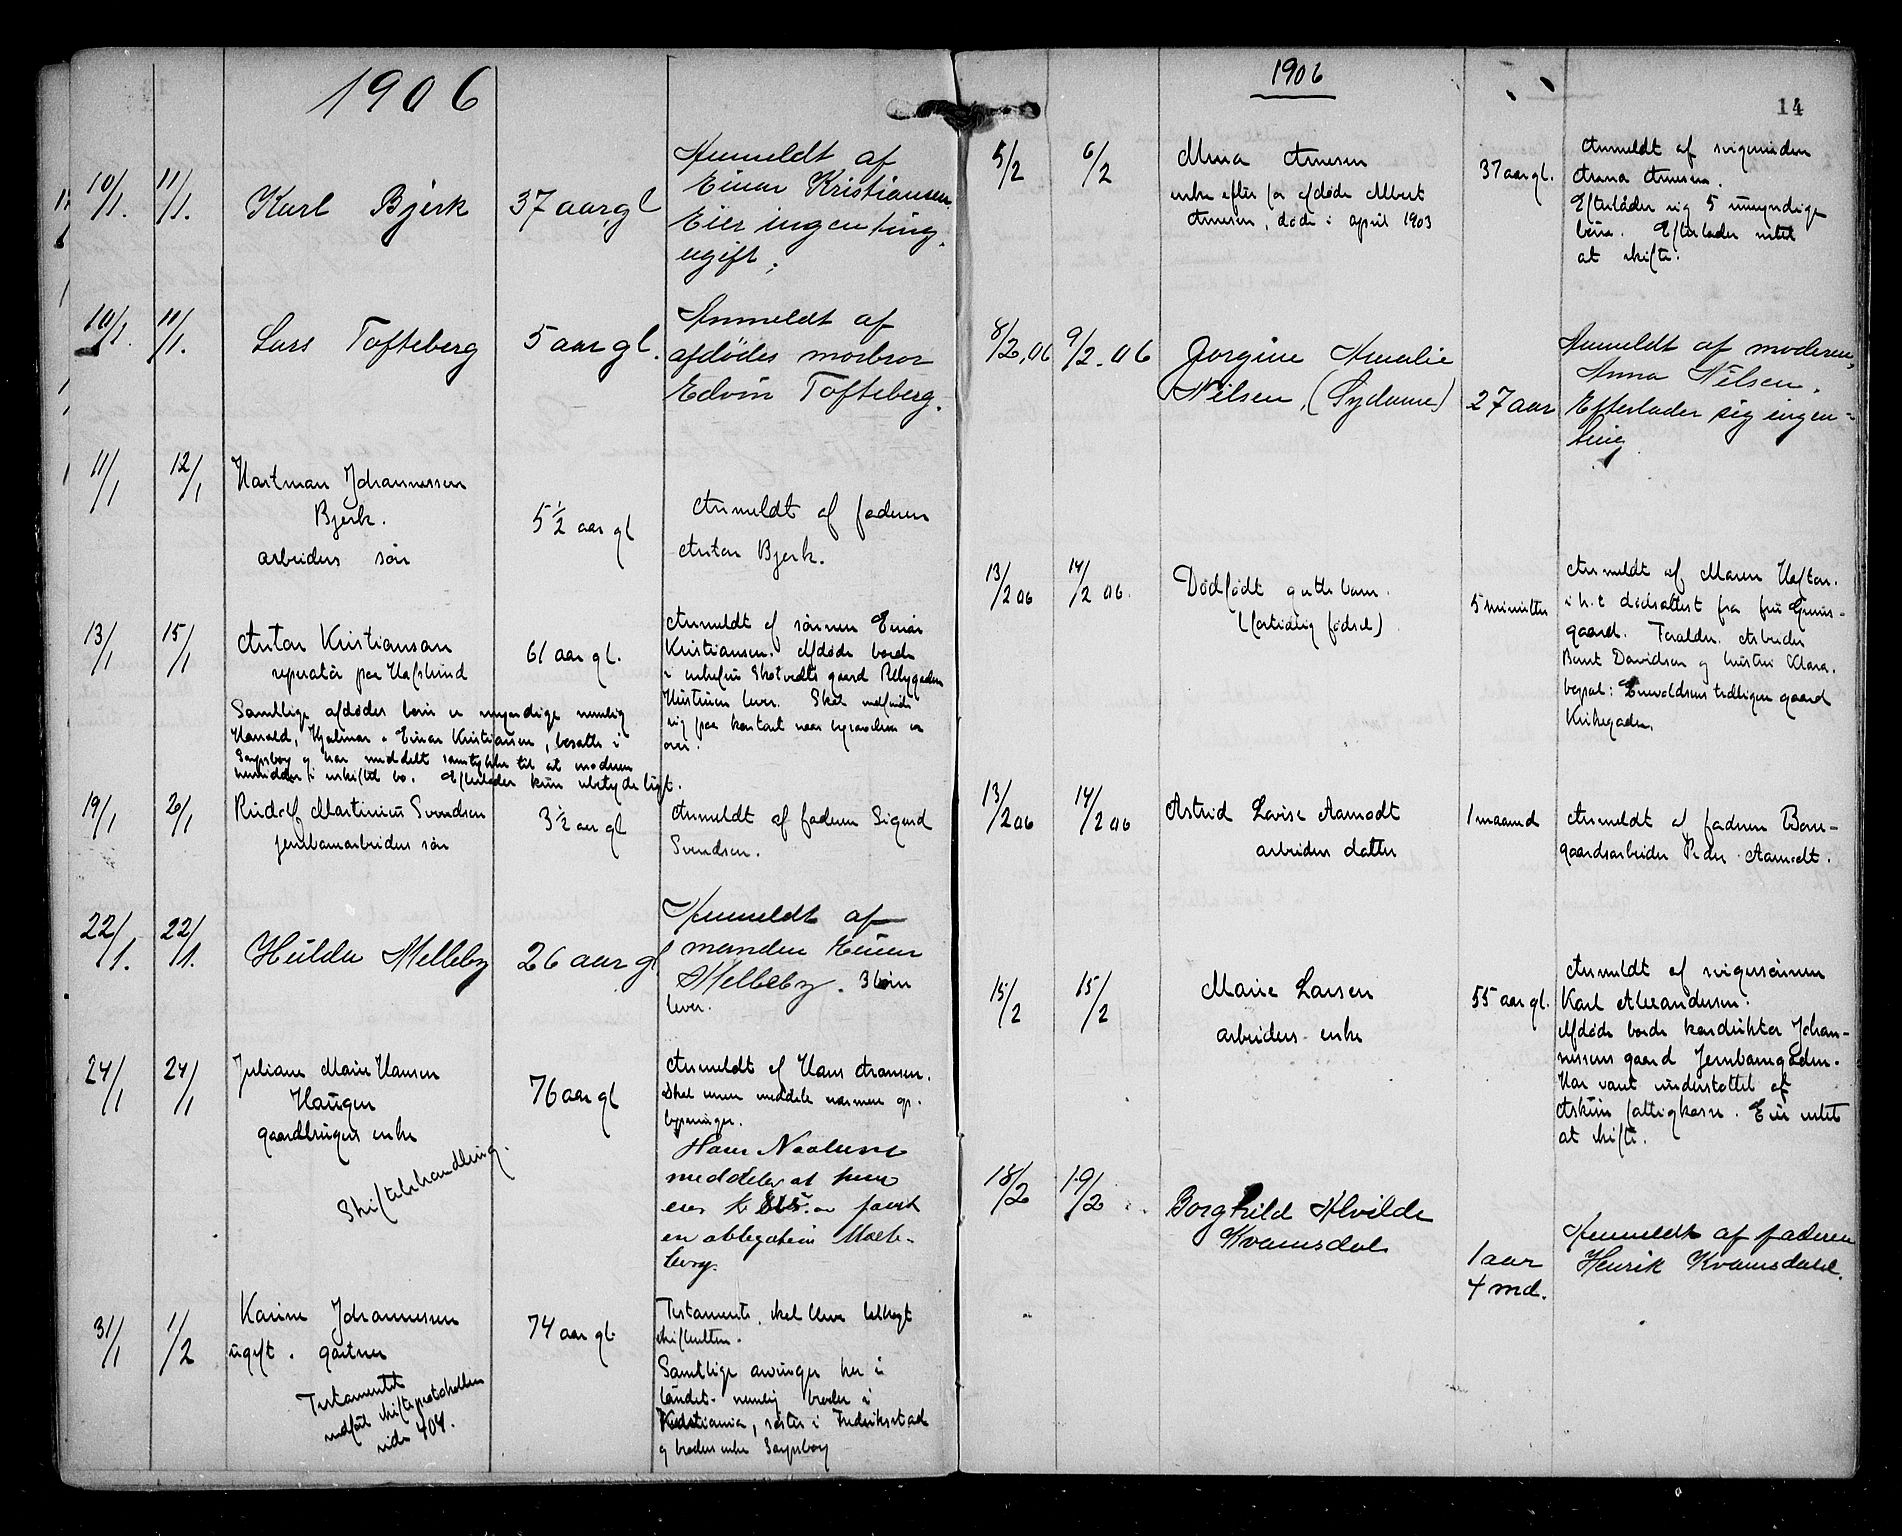 1906
10/1. 11/1. Karl Bjerk 37 aar gl Anmeldt af
Einar Kristiansen.
Eier ingenting.
ugift.
10/1. 11/1. Lars Tofteberg 5 aar gl. Anmeldt af
afdödes morbror
Edvin Tofteberg.
11/1 12/1 Hartman Johannessen
Bjerk.
arbeiders søn
5 1/2 aar gl
Anmeldt af faderen
Anton Bjerk.
13/1 15/1 Anton Kristiansen
reparatør paa Hafslund
61 aar gl.
Anmeldt af sønnen Einar
Kristiansen. Afdøde boede
i enkefru Skotvedts gaard
Hustruen lever. Skal indfinde
sig paa kontoret naar begravelsen er
over.
Samtlige afdødes børn er myndige nemlig
Harald, Hjalmar & Einar Kristiansen, bosatte i
Sarpsborg og har meddelt samtykke til at moderen
hensidder i uskiftet bo. Efterlader kun ubetydeligt.
19/1 20/1 Rudolf Martinius Svendsen
jernbanearbeiders søn
3 1/2 aar gl
Anmeldt af faderen Sigurd
Svendsen.
22/1. 22/1. Hulda Melleby 26 aar gl
Anmeldt af
manden
Melleby. 3 børn
lever.
24/1 24/1 Juliane Marie Hansen
Haugen
gaardbrugers enke
Skiftebehandling.
76 aar gl
Anmeldt af Hans Aransen.
Skal senere meddele nærmere op-
lysninger.
Hans
meddeler at hun
eier kr
en obligation
31/1 1/2 Karine Johannesen
ugift. gartner
Testamentet
indført skifteprotokollen
side 404.
74 aar gl.
Testamente, skal blive bekragt
skifteretten.
Samtlige arvinger her i
landet, nemlig broder i
Kristiania, søster i Fredriksstad
og broders enke Sarpsborg
1906
14
5/2 6/2 Mina Arnesen
enke efter før afdøde Albert
Arnesen, døde i april 1903
37 aar gl.
Anmeldt af svigerinden
Anna Arnesen.
Efterlader sig 5 umyndige
børn. Efterlader intet
at skifte.
8/2.06 9/2.06 Jorgine Amalie
Nilsen, (Sydame) 27 aar
Anmeldt af moderen,
Anna Nilsen.
Efterlader sig ingen-
ting
13/2 06 14/2 06. Dødfødt guttebarn.
(fortidlig fødsel)
5 minutter
Anmeldt af Maren Hafton.
i h. t. dødsattest fra fru
gaard. Foraldre. Arbeider
Bernt Davidsen og hustru Klara.
bopæl: Enevoldsens tidligere gaard
Kirkegaden.
13/2 06 14/2 06 Astrid Lovise Aamodt
arbeiders datter
1 maaned
Anmeldt af faderen Borre-
gaardsarbeider Peder Aamodt.
15/2 15/2 Marie Larsen
arbeiders enke
55 aar gl.
Anmeldt af svigersønnen
Karl Alexandersen.
Afdøde boede konduktør Johan-
nessens gaard Jernbanegaden.
Har været understøttet af
Askim fattigkasse. Eier intet
at skifte.
18/2 19/2 Borghild Alvilde
Kvamsdal
1 aar
4 md.
Anmeldt af faderen
Henrik Kvamsdahl.